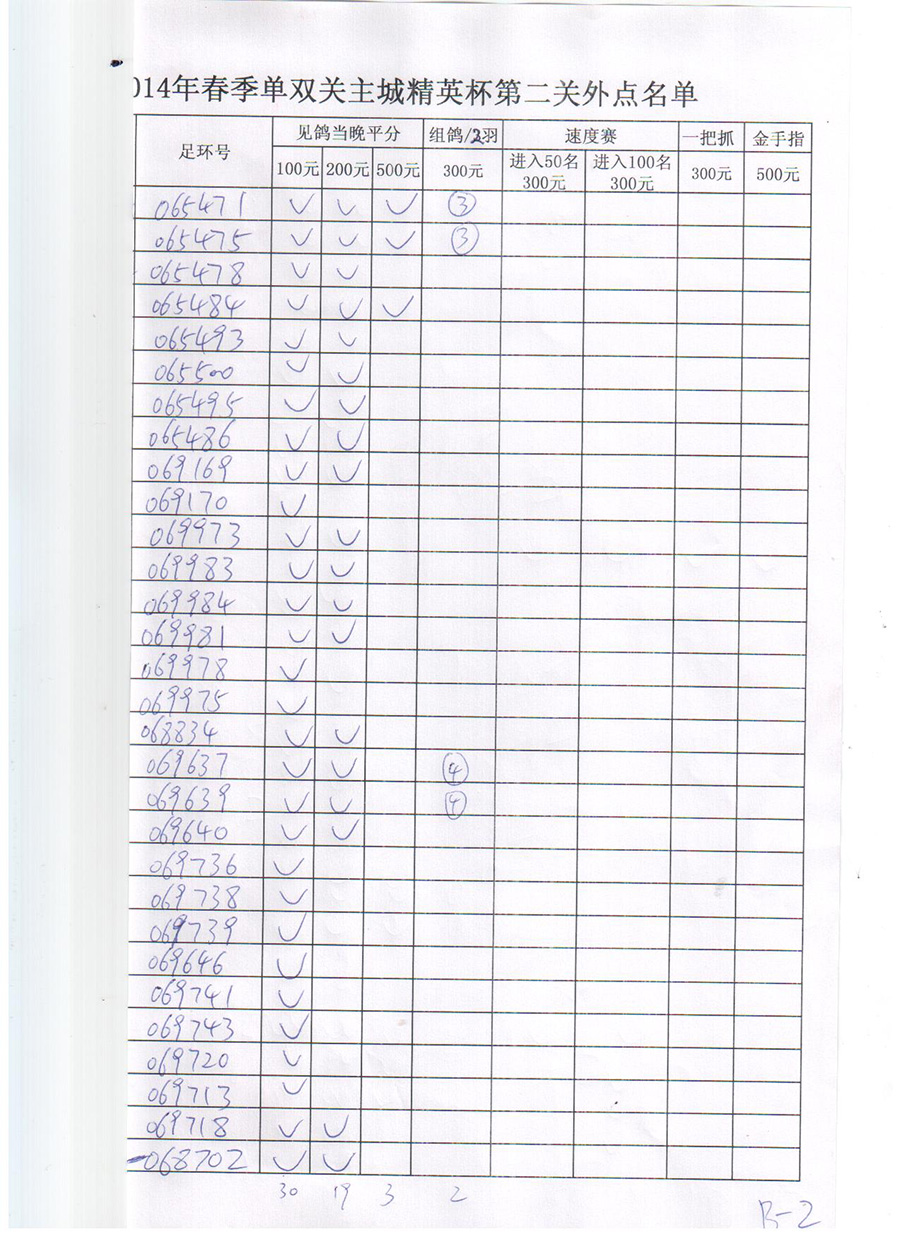 014年春季单双关主城精英杯第二关外点名单
足环号 见鸽当晚平分 组鸽/2羽 速度赛 一把抓 金手指
100元 200元 500元 300元 进入50名 300元 进入100名 300元 300元 500元
065471 ✓ ✓ ✓ ③
065475 ✓ ✓ ✓ ③
065478 ✓ ✓
065484 ✓ ✓ ✓
065493 ✓ ✓
065500 ✓ ✓
065495 ✓ ✓
065486 ✓ ✓
069169 ✓ ✓
069170 ✓
069973 ✓ ✓
069983 ✓ ✓
069984 ✓ ✓
069981 ✓ ✓
069978 ✓
069975 ✓
068834 ✓ ✓
069637 ✓ ✓ ④
069639 ✓ ✓ ④
069640 ✓ ✓
069736 ✓
069738 ✓
069739 ✓
069646 ✓
069741 ✓
069743 ✓
069720 ✓
069713 ✓
069718 ✓ ✓
068702 ✓ ✓
30 19 3 2
B-2